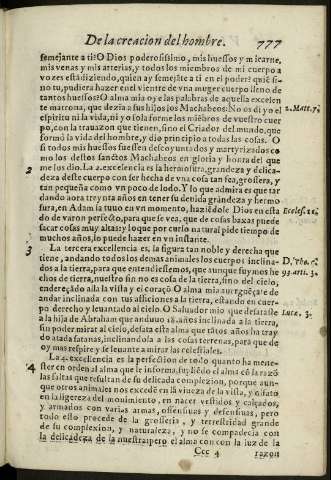 De la creacion del hombre. 777
semejante a ti? O Dios poderosissimo, mis huessos y mi carne,
mis venas y mis arterias, y todos los miembros de mi cuerpo a
vozes está diziendo, quien ay semejāte a ti en el poder? quiē si-
no tu, pudiera hazer en el vientre de vna muger cuerpo lleno de
tantos huessos? O alma mia oye las palabras de aquella excelen
te matrona, que dezia a sus hijos los Machabeos: No os di yo el
espiritu ni la vida, ni yo sola forme los miēbros de vuestro cuer
po, con la trauazon que tienen, sino el Criador del mundo, que
formó la vida del hombre, y dio principio a todas las cosas. O
si todos mis huessos fuessen descoyuntados y martyrizados co
mo los destos sanctos Machabeos en gloria y honra del que
me los dio. La 2. excelencia es la hermosura, grandeza y delica-
deza deste cuerpo con ser hecha de vna cosa tan fea, grossera, y
tan pequeña como vn poco de lodo. Y lo que admira es que tar
dando aora treynta años en tener su deuida grādeza y hermo
sura, en Adam la tuuo en vn momento, haziēdole Dios en esta
do de varon perfecto, para que se vea, que de cosas baxas puede
sacar cosas muy altas: y lo que por curso natural pide tiempo de
muchos años, lo puede hazer en vn instante.
La tercera excellencia es, la figura tan noble y derecha que
tiene, andando todos los demas animales los cuerpos inclina-
dos a la tierra, para que entendiessemos, que aunque fuymos he
chos de tierra, nuestro fin no es cosa de la tierra, sino del cielo,
endereçādo allà la vista y el coraçō. O alma mia auerguēçate de
andar inclinada con tus afficciones a la tierra, estando en cuer-
po derecho y leuantado al cielo. O Saluador mio que desataste
a la hija de Abraham que anduuo 18. años inclinada a la tierra,
sin poder mirar al cielo, desata esta alma que tātos años ha tray
do atada satanas, inclinandola a las cosas terrenas, para que de
oy mas respire y se leuante a mirar las celestiales.
La 4. excellencia es la perfection de todo quanto ha mene-
ster en orden al alma que le informa, su lleōdo el alma cō la razō
las faltas que resultan de su delicada complexion, porque aun-
que otros animales nos excedē en la viueza de la vista, y olfato
en la ligereza del mouimiento, en nacer vestidos y calçados,
y armados con varias armas, offensiuas y defensiuas, pero
todo esto procede de la grosseria, y terrestridad grande
de su complexion, y naturaleza, y no se compadecia con
la delicadeza de la nuestra: pero el alma con con la luz de la
Ccc 4 razon
2. Mat. 7.
2
Eccles. 11.
3
D. Tho. 1.
93. arti. 3.
Luca. 13.
4